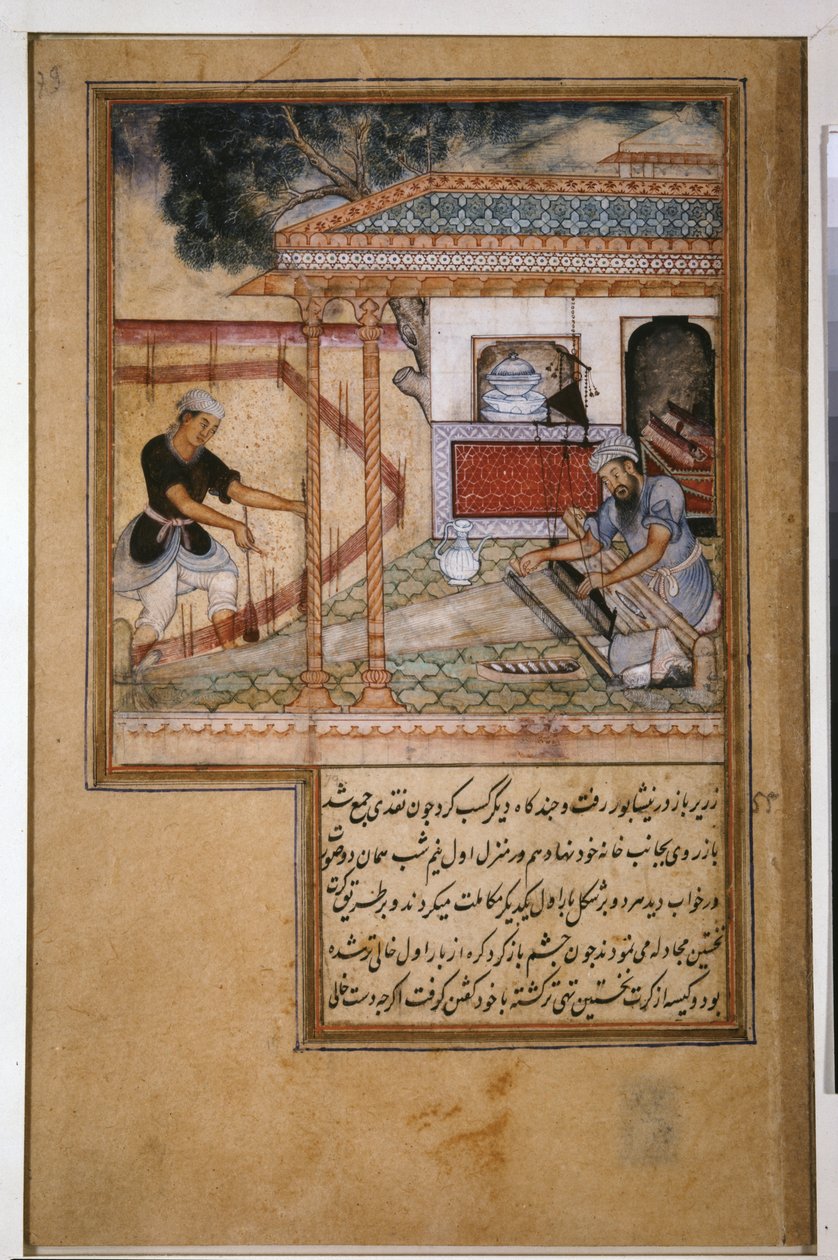 زریر باز در نیشابور رفت و جند کاه دیکر کسب کرد جون نقدی جمع شد
باز روی بجانب خانه خود نهاد هم در منزل اول نیم شب همان دو صورت
در خواب دید هر دو بر شکل بار اول یکدیکر مکالمت میکردند و بر طریق کرت
نخستین مجادله می نمودند جون جشم باز کرد کره از بار اول خالی تر شده
بود و کیسه از کرت نخستین تهی تر کشته با خود کفتن کرفت اکرجه دست خالی